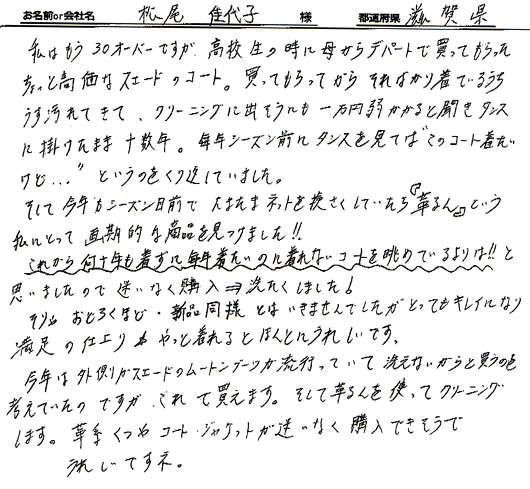 お名前or会社名 松尾 佳代子 様 都道府県 滋賀県
私はもう30オーバーですが、高校生の時に母からデパートで買ってもらった
ちょっと高価なスエードのコート。買ってもらってから そればかり着でるうち
うす汚れてきて、クリーニングに出そうにも 一万円弱かかると聞きタンス
に掛けたまま十数年。毎年シーズン前にタンスを見ては“このコート着たい
けど…”というのをくり返していました。
そして今年もシーズン目前で たまたまネットを検さくしていたら『革るん』という
私にとって画期的な商品を見つけました!!
これから何十年も着ずに毎年着たいのに着れないコートを眺めているよりは!!と
思いましたので迷いなく購入⇒洗たくしました!
そりゃ おどろくほど・新品同様 とはいきませんでしたがとってもキレイになり
満足の仕上り やっと着れるとほんとにうれしいです。
今年は外側がスエードのムートンブーツが流行っていて洗えないからと買うのを
考えていたのですが これで買えます。そして革るんを使ってクリーニング
します。革系くつやコート・ジャケットが迷いなく購入できそうで
うれしいですネ。